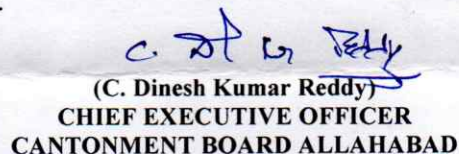 (C. Dinesh Kumar Reddy)
CHIEF EXECUTIVE OFFICER
CANTONMENT BOARD ALLAHABAD